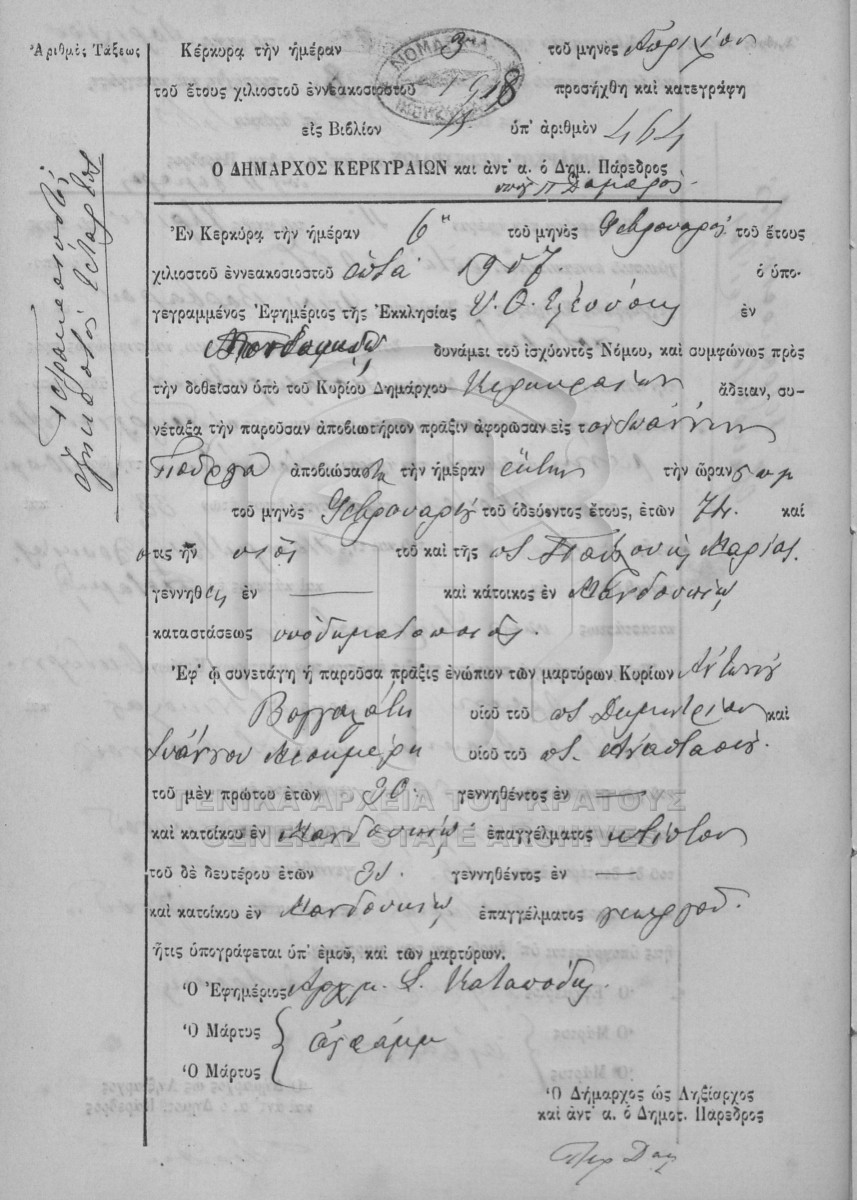 Ἀριθμὸς Τάξεως
τετρακοσιοστός
ἑξηκοστός τέταρτος
Κέρκυρα τὴν ἡμέραν 3 τοῦ μηνὸς Ἀπριλίου
τοῦ ἔτους χιλιοστοῦ ἐννεακοσιοστοῦ 1918 προσήχθη καὶ κατεγράφη
εἰς Βιβλίον ὑπ' ἀριθμὸν 464
Ο ΔΗΜΑΡΧΟΣ ΚΕΡΚΥΡΑΙΩΝ καὶ ἀντ' α. ὁ Δημ. Πάρεδρος
Ἐν Κερκύρᾳ τὴν ἡμέραν 6 τοῦ μηνὸς Φεβρουαρίου τοῦ ἔτους
χιλιοστοῦ ἐννεακοσιοστοῦ ἑπτὰ 1907 ὁ ὑπο-
γεγραμμένος Ἐφημέριος τῆς Ἐκκλησίας Υ. Θ. Ἐλεούσης ἐν
δυνάμει τοῦ ἰσχύοντος Νόμου, καὶ συμφώνως πρὸς
τὴν δοθεῖσαν ὑπὸ τοῦ Κυρίου Δημάρχου Κερκυραίων ἄδειαν, συ-
νέταξα τὴν παροῦσαν ἀποβιωτήριον πρᾶξιν ἀφορῶσαν εἰς τὸν Ἰωάννην
ἀποβιώσαντα τὴν ἡμέραν ἕκτην τὴν ὥραν 5 π μ
τοῦ μηνὸς Φεβρουαρίου τοῦ ὁδεύοντος ἔτους, ἐτῶν 74. καὶ
ὅτις ἦν υἱὸς τοῦ καὶ τῆς Μαρίας.
γεννηθεὶς ἐν — καὶ κάτοικος ἐν Μανδουκίῳ
καταστάσεως ὑποδηματοποιός.
Ἐφ' ᾧ συνετάγη ἡ παροῦσα πρᾶξις ἐνώπιον τῶν μαρτύρων Κυρίων Ἀντωνίου
υἱοῦ τοῦ ποτ. Δημητρίου καὶ
Ἰωάννου υἱοῦ τοῦ ποτ. Ἀναστασίου.
τοῦ μὲν πρώτου ἐτῶν 30. γεννηθέντος ἐν —
καὶ κατοίκου ἐν Μανδουκίῳ ἐπαγγέλματος κτίστου
τοῦ δὲ δευτέρου ἐτῶν γεννηθέντος ἐν —
καὶ κατοίκου ἐν Μανδουκίῳ ἐπαγγέλματος γεωργοῦ.
ἥτις ὑπογράφεται ὑπ' ἐμοῦ, καὶ τῶν μαρτύρων.
Ὁ Ἐφημέριος Καταπόδης.
Ὁ Μάρτυς
ἀγράμμ
Ὁ Μάρτυς
Ὁ Δήμαρχος ὡς Ληξίαρχος
καὶ ἀντ' α. ὁ Δημοτ. Πάρεδρος
ΓΕΝΙΚΑ ΑΡΧΕΙΑ ΤΟΥ ΚΡΑΤΟΥΣ
GENERAL STATE ARCHIVES